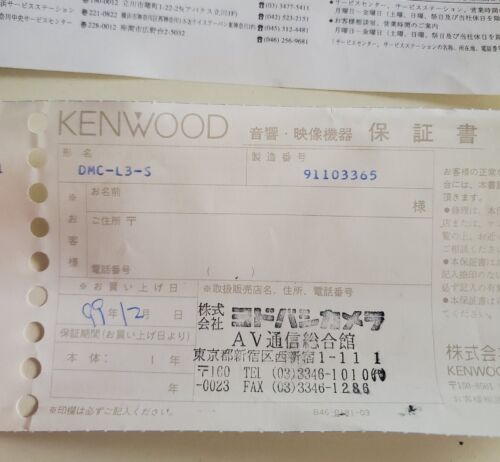 浜サービスステーション
奈川中央サービスセンター
190-0012 立川市曙町1-22-2
〒221-0822
〒228-0012 座間市広野台2-5032
(03) 3477-5411
(042) 523-2151
(045) 312-4481
(046) 256-9681
サービスセンター、サービスステーション、営業時間の
月曜日～金曜日 (土曜、日曜、祭日及び当社休日を除
●お客様相談室、営業時間のご案内
月曜日～金曜日 (土曜、日曜、祭日及び当社休日を除
(サービスセンター、サービスステーションの名称、所在地、電話番号
KENWOOD 音響・映像機器 保証書
形名 製造番号
DMC-L3-S 91103365
※お客様
お名前 様
ご住所 〒
電話番号 ( )
※お買い上げ日
99年12月 日
保証期間 (お買い上げ日より)
本体: 1年
年
※印欄は必ずご記入ください。
※取扱販売店名、住所、電話番号
株式会社 ヨドバシカメラ
AV通信総合館
東京都新宿区西新宿1-11 1
〒160 TEL (03)3346-1010
-0023 FAX (03)3346-1286
B46-0181-03
お客様の正常な
合には、本書
●修理は、本
店または、
覧の上、お近
ご相談ください
●本保証書は
記入捺印の
い場合には
●本保証書は
てください。
株式会
KENWOOD
〒150-8501